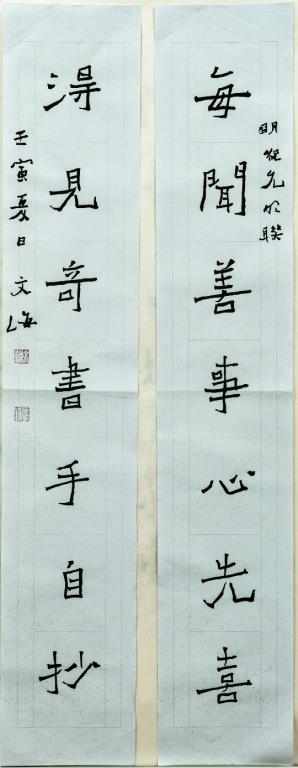 每聞善事心先喜
明祝允明聯
得見奇書手自抄
壬寅夏日文海